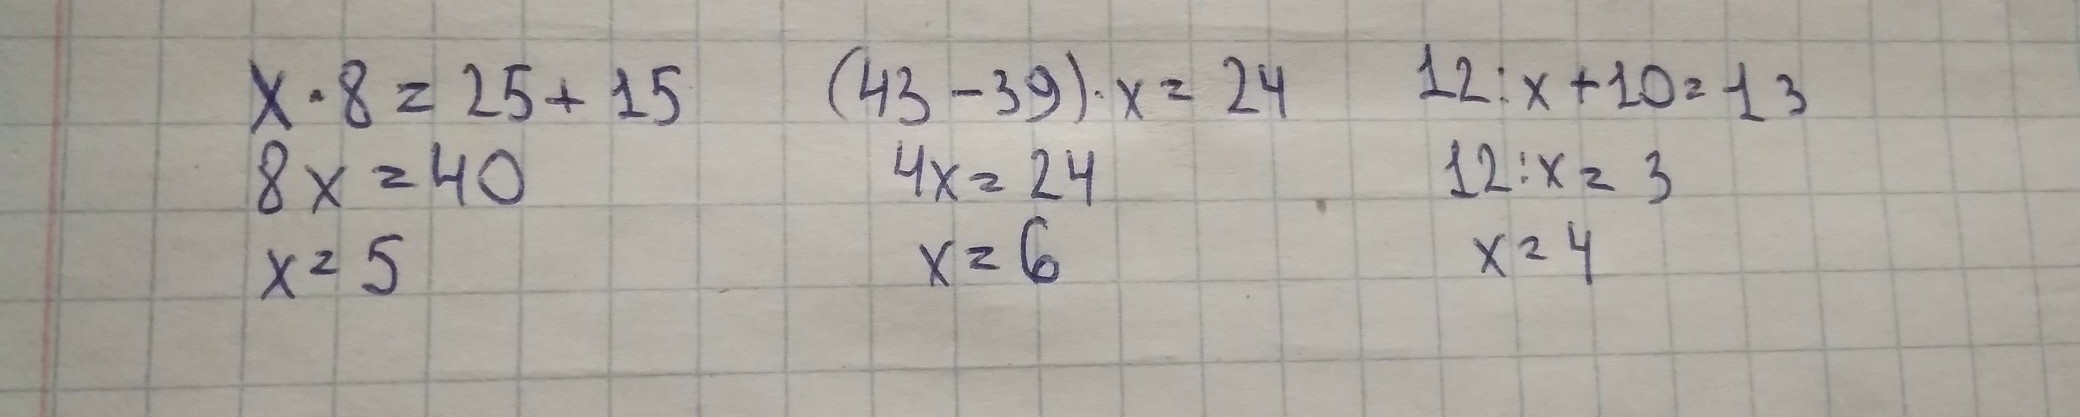 x·8=25+15
8x=40
x=5
(43-39)·x=24
4x=24
x=6
12:x+10=13
12:x=3
x=4